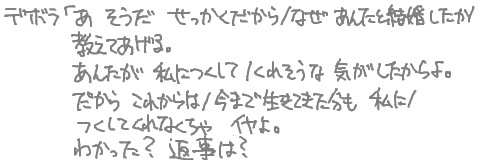 デボラ「あ そうだ せっかくだから/なぜ あんたと結婚したか/
教えてあげる。
あんたが 私につくして/くれそうな 気がしたからよ。
だから これからは/今まで生きてきた分も 私に/
つくしてくれなくちゃ イヤよ。
わかった？ 返事は？